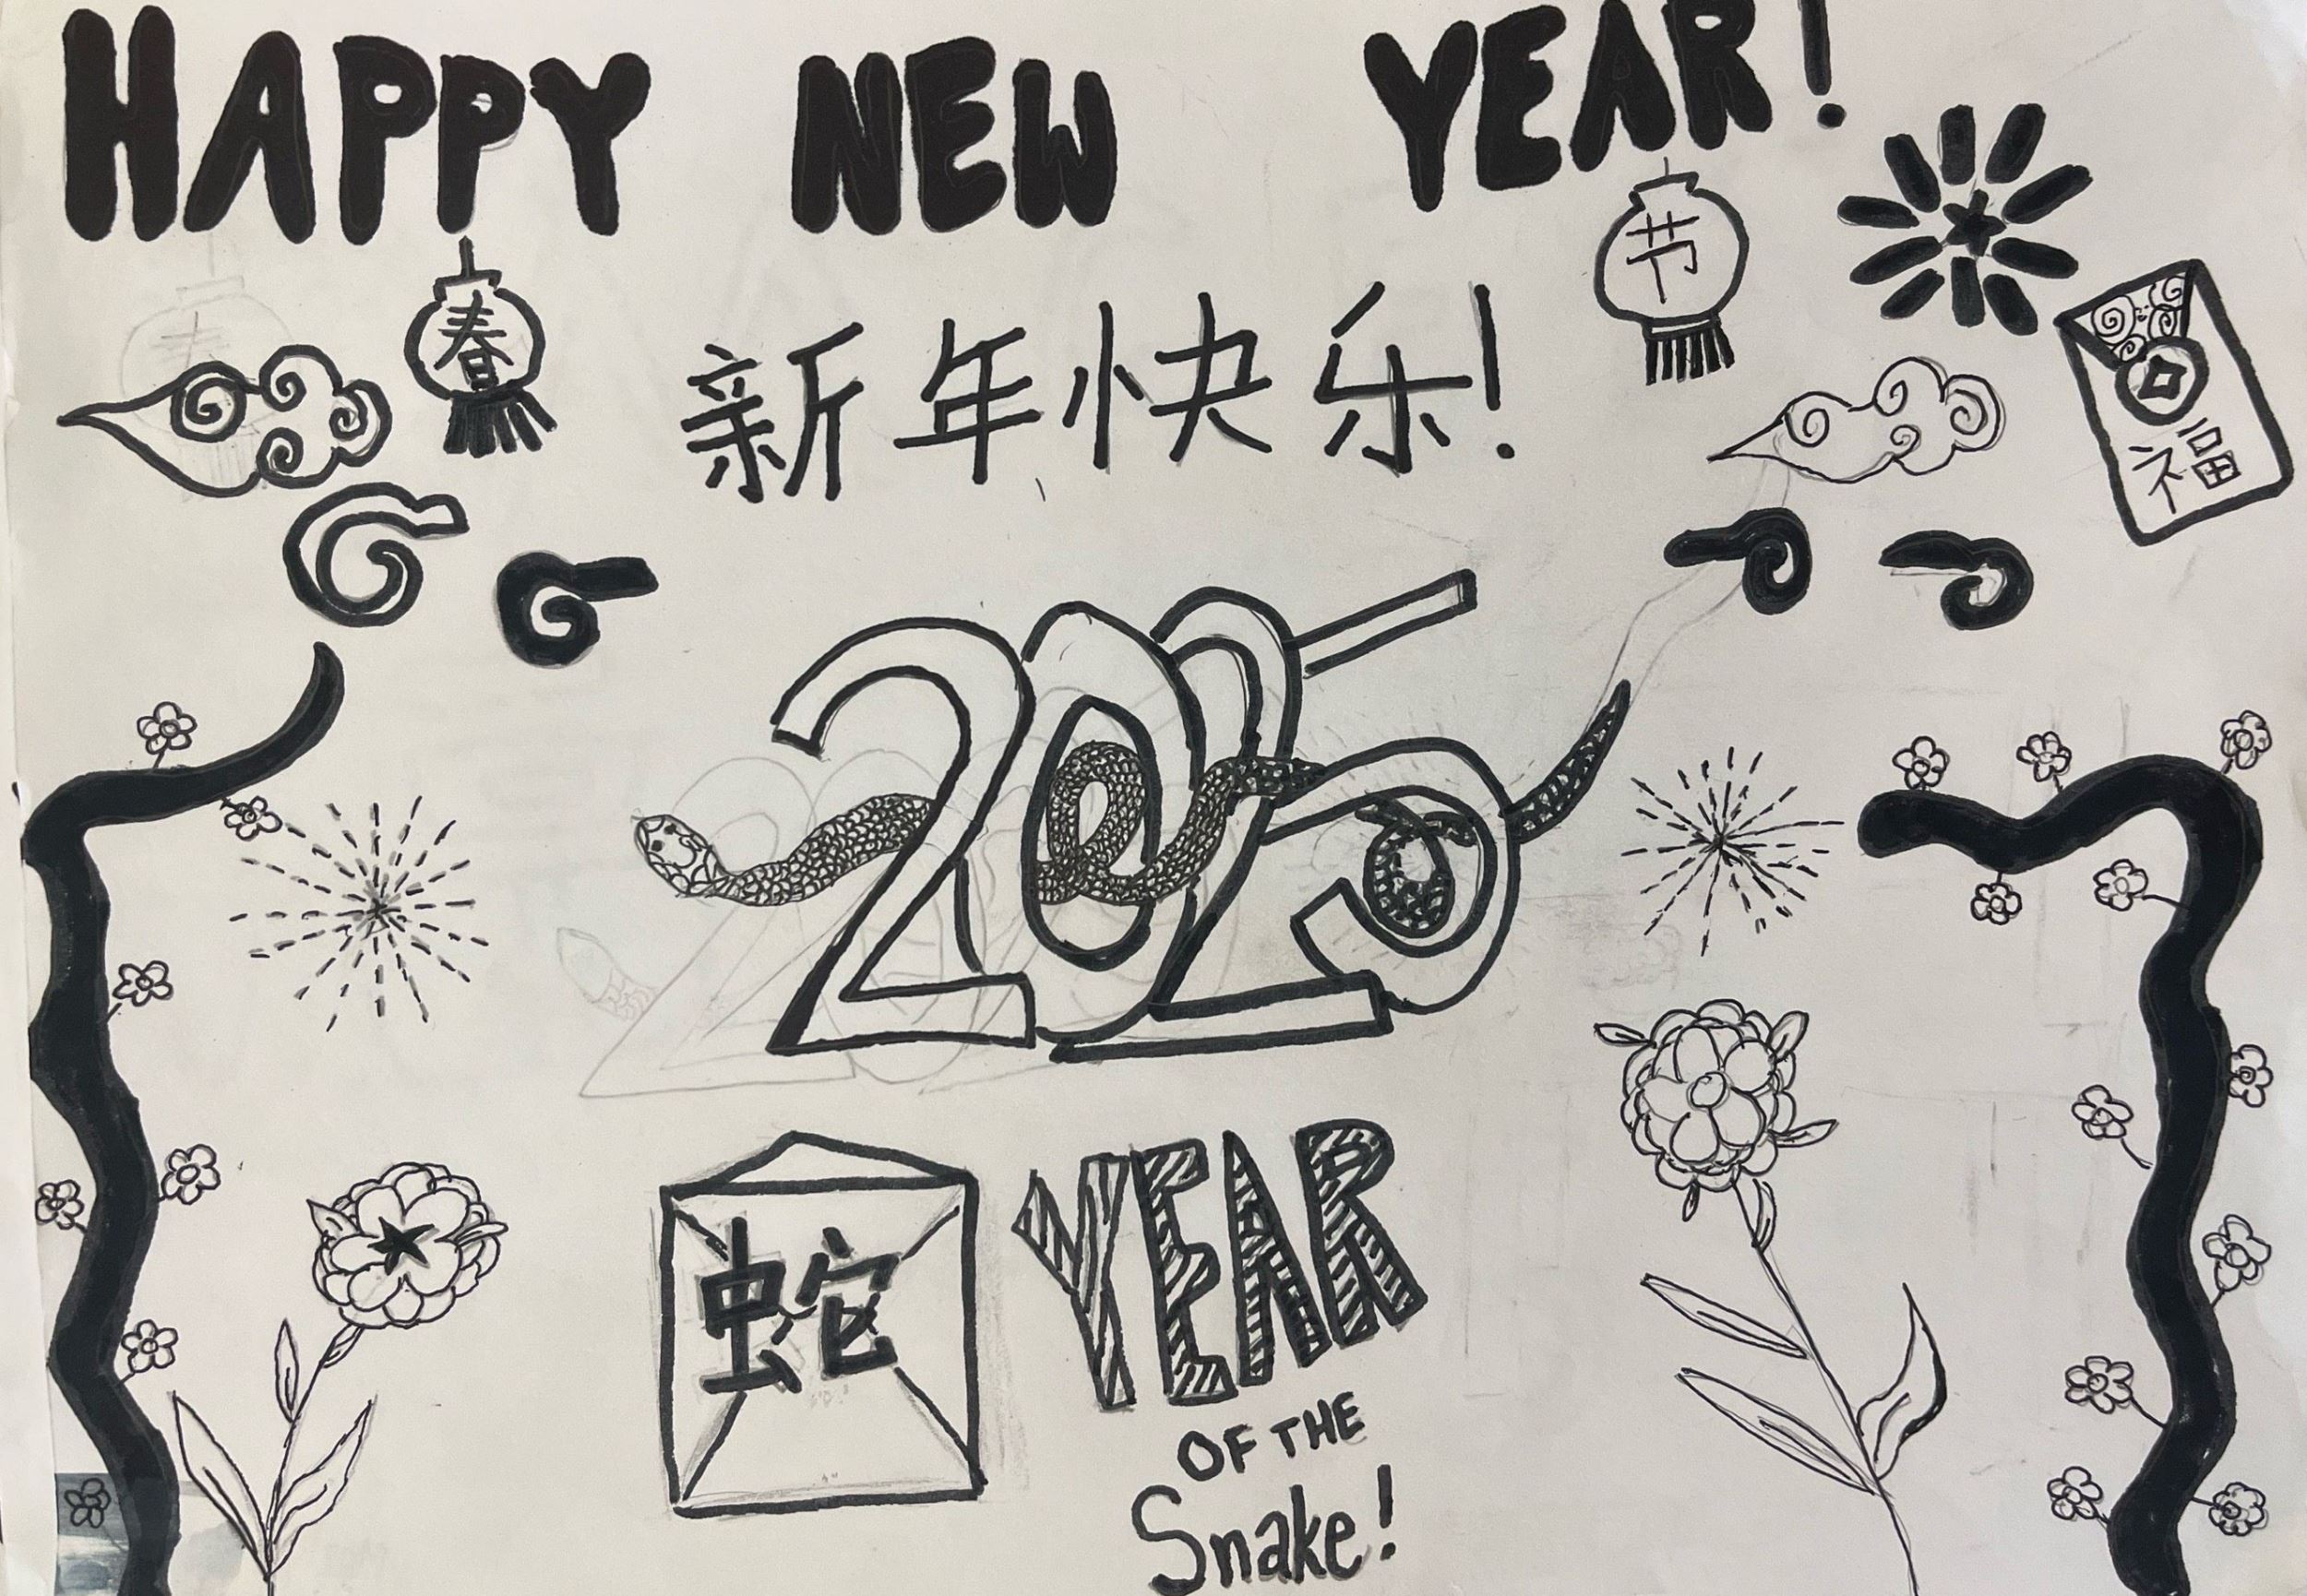 HAPPY NEW YEAR!
春
节
新年快乐!
福
2025
蛇
YEAR
OF THE
Snake!